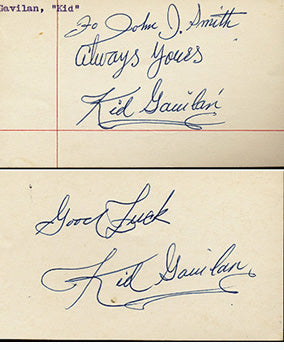 Gavilan, "Kid"
To John J. Smith
Always Yours
Kid Gavilan
Good Luck
Kid Gavilan